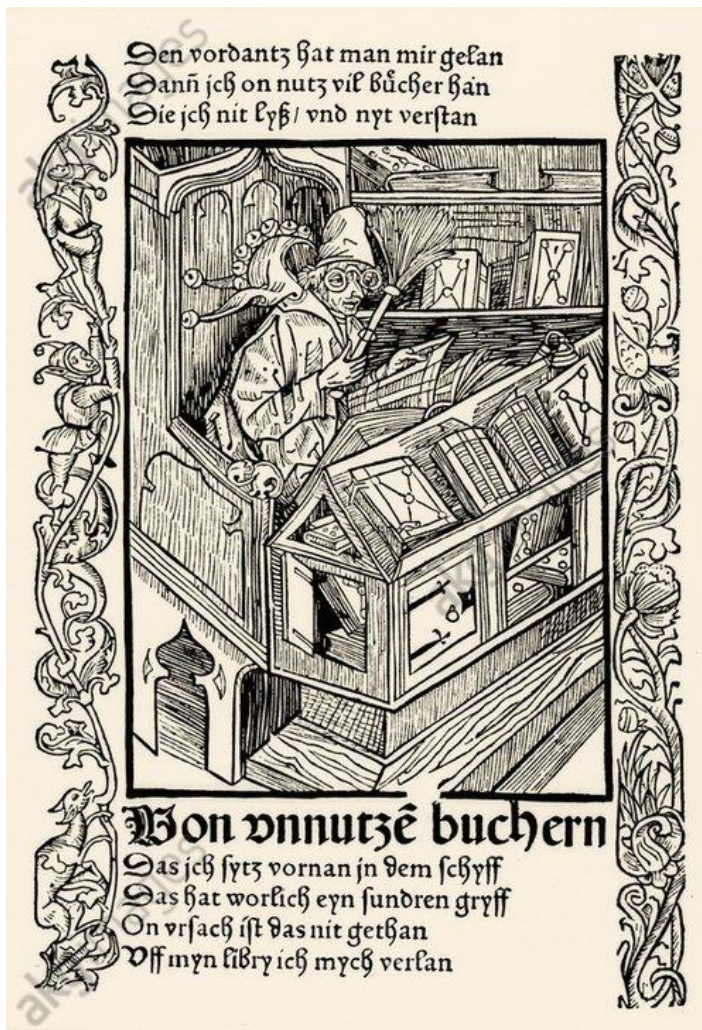 Den vordantz hat man mir gelan
Dann̄ jch on nutz vil buͤcher han
Die jch nit lyß / vnd nyt verstan
Von vnnutzē buchern
Das jch sytz vornan jn dem schyff
Das hat worlich eyn sundren gryff
On vrsach ist das nit gethan
Vff myn libry ich mych verlan
akg-images
akg-images
akg-images